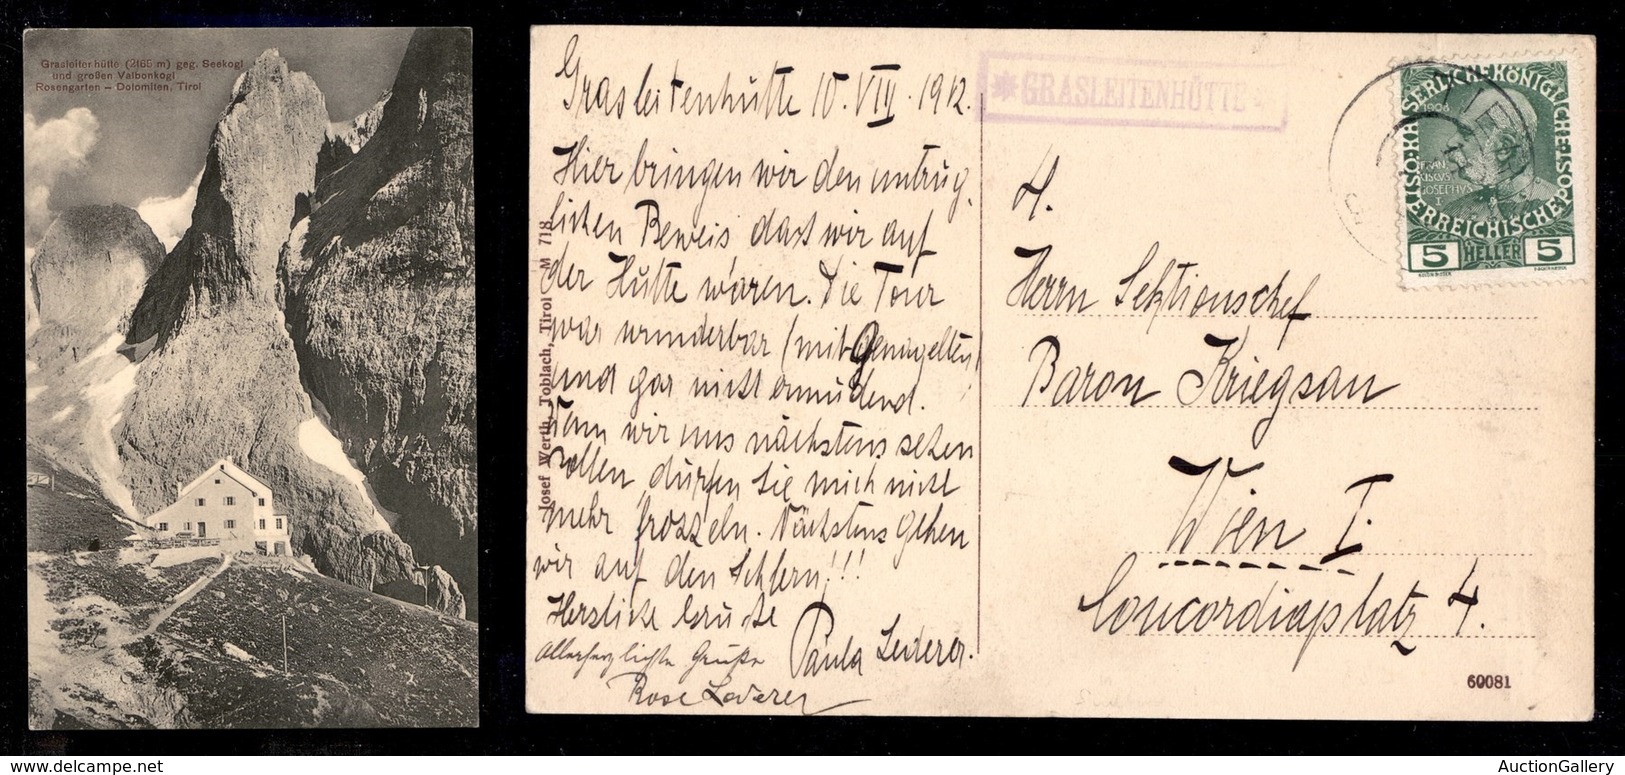 Grasleitenhütte (2165 m) geg. Seekogl
und großen Valbonkogl
Rosengarten – Dolomiten, Tirol
Grasleitenhütte 10. VIII. 1912.
Hier bringen wir den untrüg-
lichen Beweis dass wir auf
der Hütte waren. Die Tour
war wunderbar (mit Genagelten)
und gar nicht ermüdend.
Wenn wir uns nächstens sehen
sollen, dürfen Sie mich nicht
mehr frozzeln. Nächstens gehen
wir auf den Schlern!!!
Herzliche Grüße
Paula Lederer.
Allerherzlichste Grüße
Rose Lederer
Josef Werth, Toblach, Tirol M 718
*GRASLEITENHÜTTE*
KAISERLICHE KÖNIGLICHE
ÖSTERREICHISCHE POST
1908
FRAN
CISCVS
IOSEPHVS
I
5 HELLER 5
H.
Herrn Sektionschef
Baron Kriegsau
Wien I.
Concordiaplatz 4.
60081
AuctionGallery